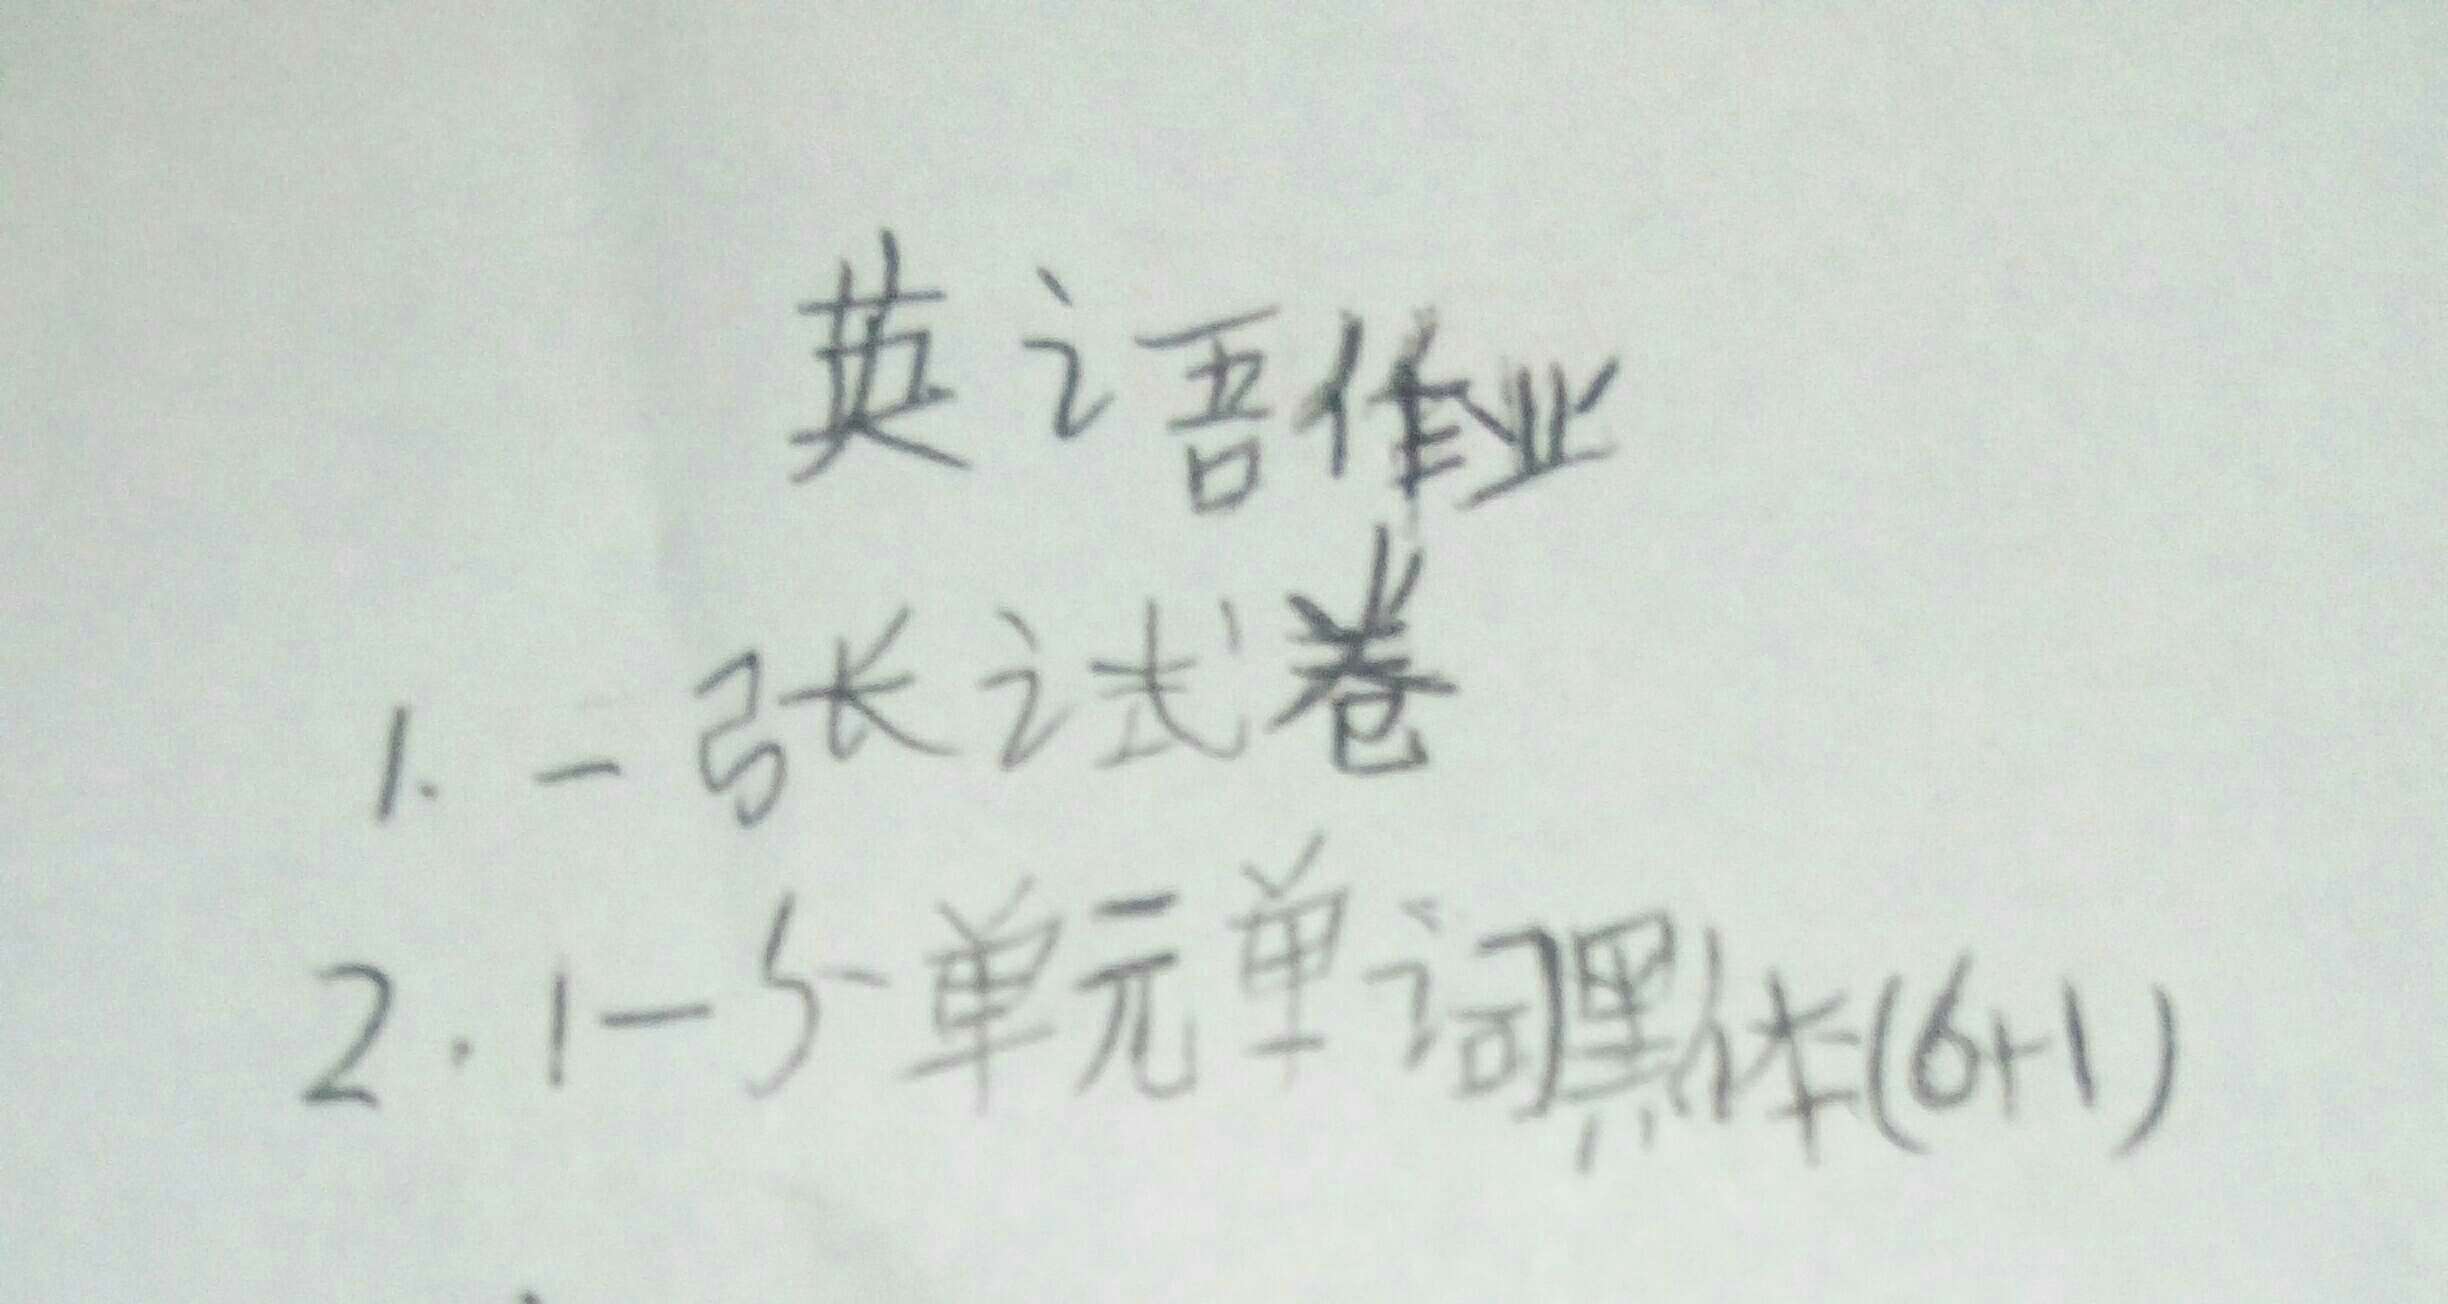 英语作业
1. 一张试卷
2. 1—5单元单词黑体(6+1)